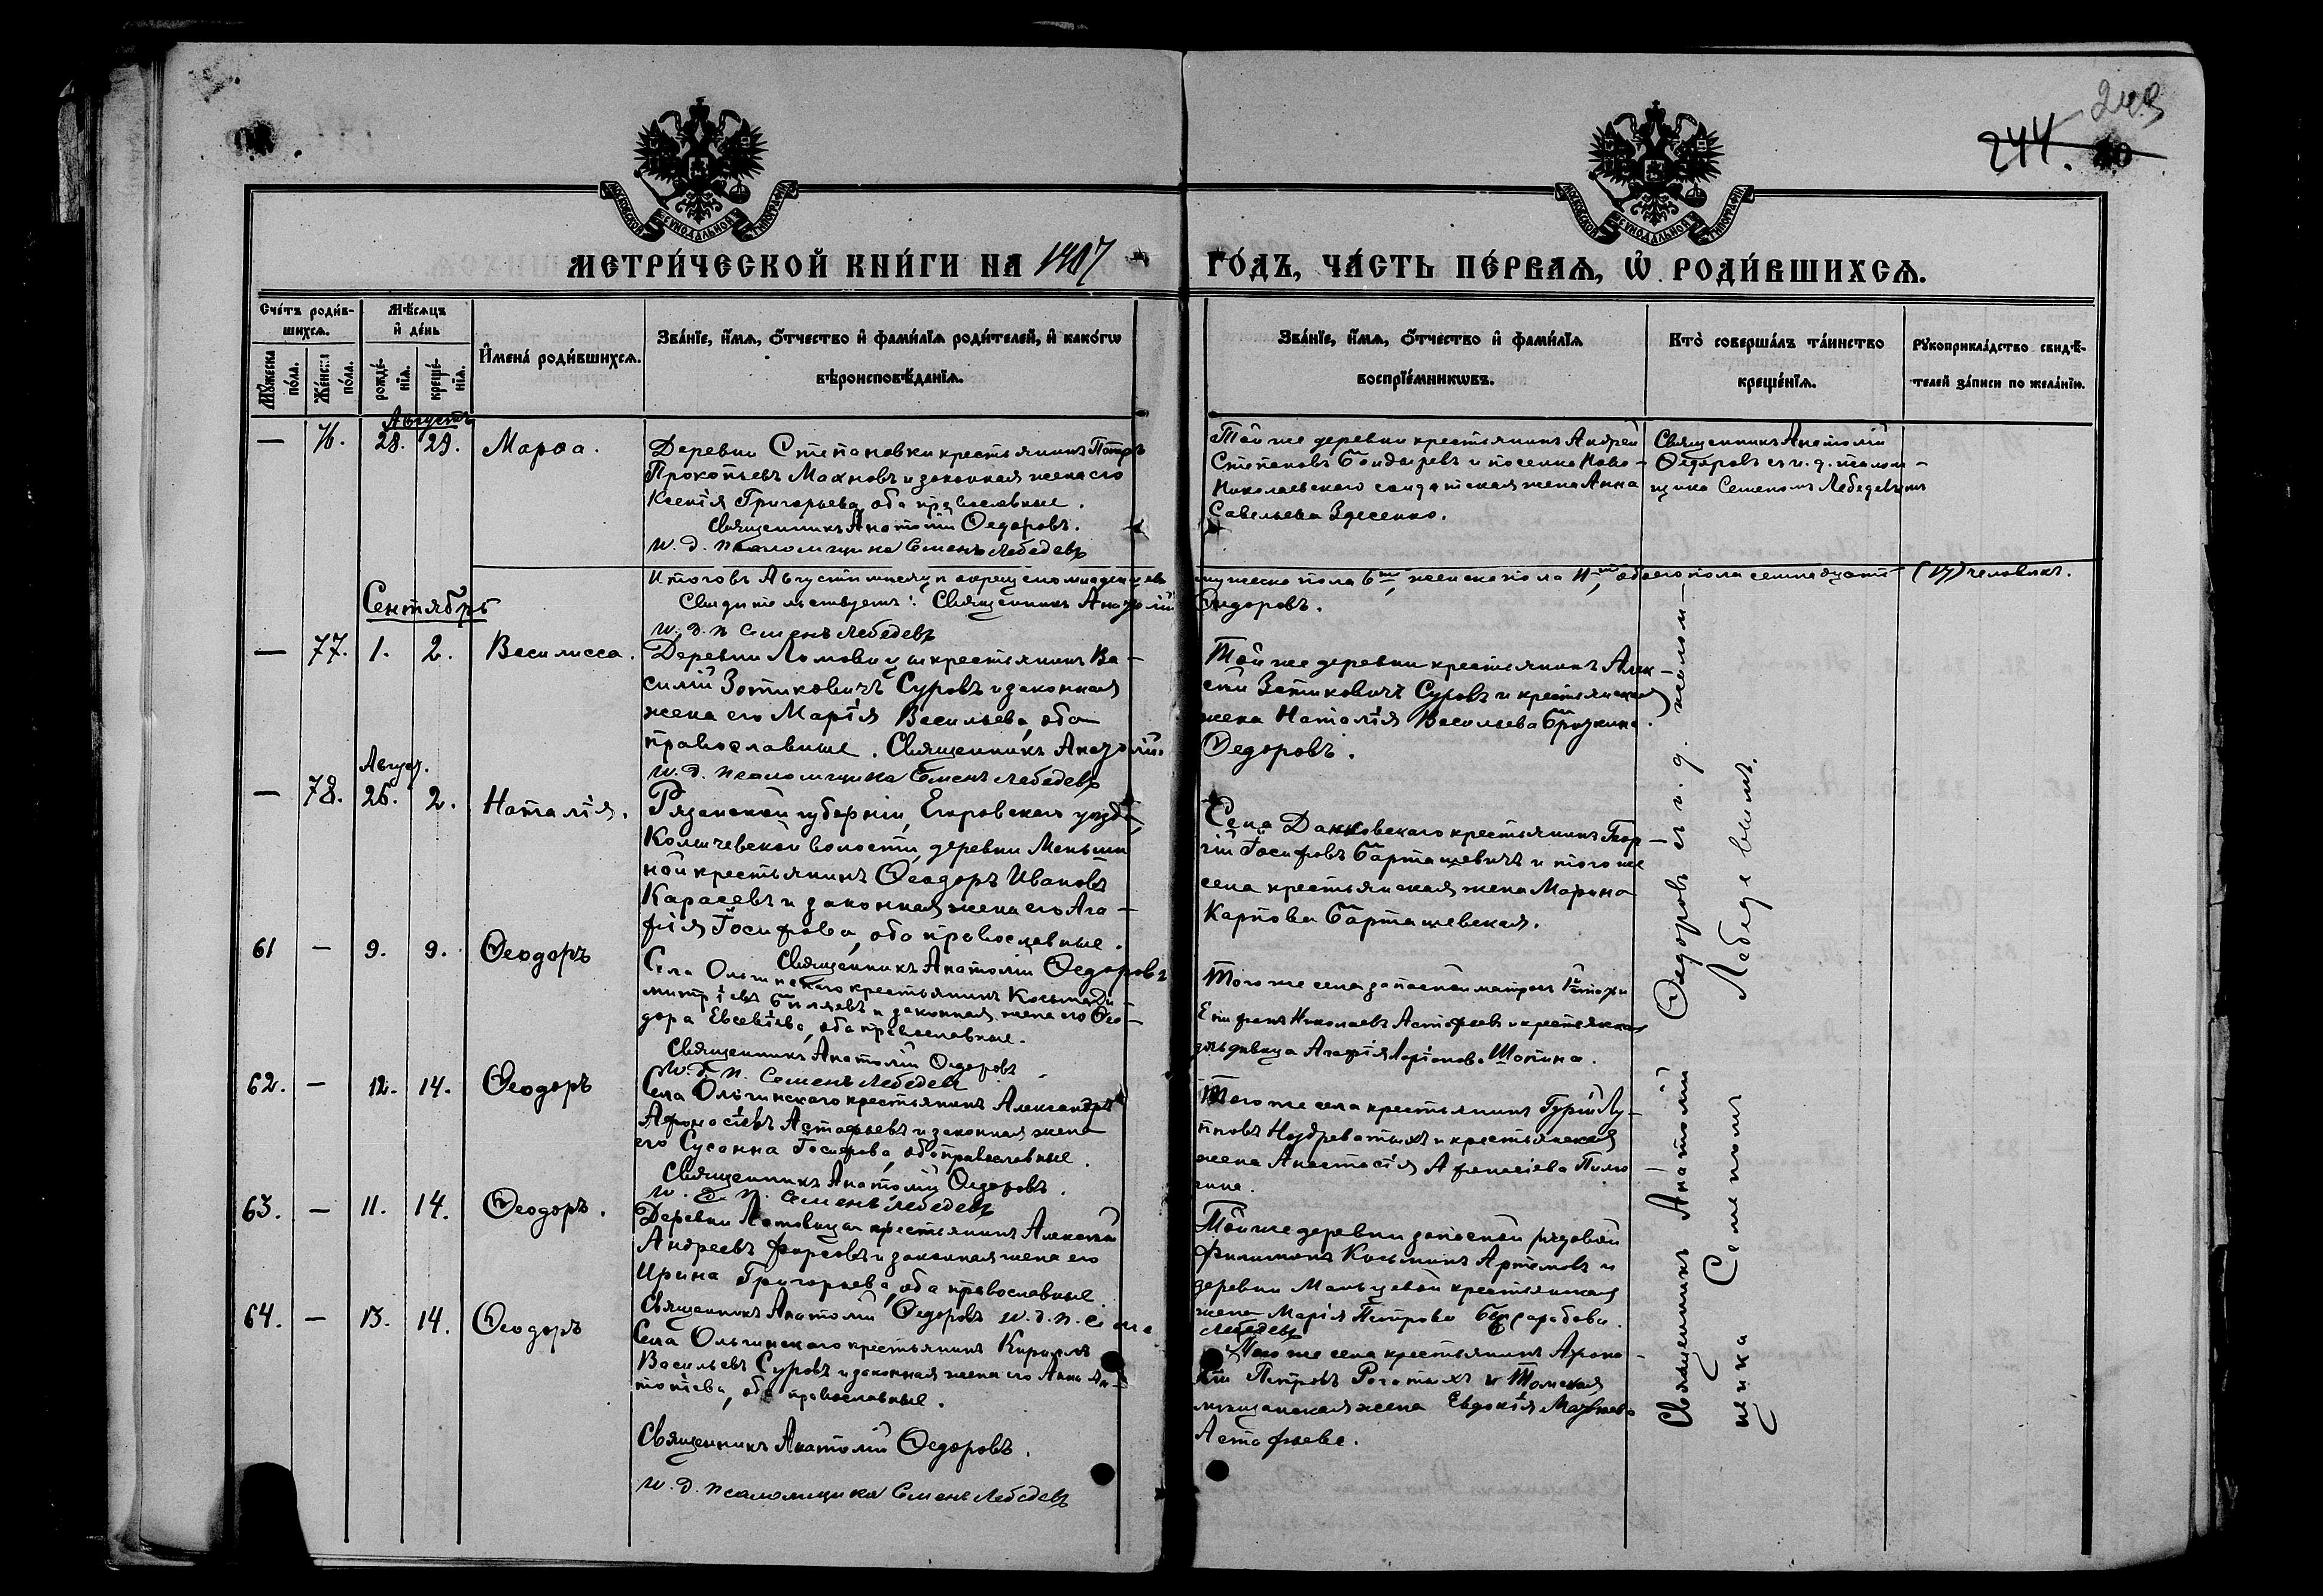 243
244.
МОСКОВСКОЙ СѴНОДАЛЬНОЙ ТИПОГРАФІИ
МОСКОВСКОЙ СѴНОДАЛЬНОЙ ТИПОГРАФІИ
МЕТРИ́ЧЕСКОЙ КНИ́ГИ НА 1907
ГО́ДЪ, ЧА́СТЬ ПЕ́РВАѦ, Ѡ҆ РОДИ́ВШИХСѦ.
Сче́тъ роди́в-
шихсѧ.
Мꙋжеска по́ла.
Же́нска по́ла.
Мѣ́сѧцъ
и҆ де́нь
рожде́-
нїѧ.
креще́-
нїѧ.
И҆мена̀ роди́вшихсѧ.
Зва́нїе, и҆́мѧ, ѻ҆́тчество и҆ фами́лїѧ роди́телей, и҆ како́гѡ
вѣроисповѣ́данїѧ.
Зва́нїе, и҆́мѧ, ѻ҆́тчество и҆ фами́лїѧ
воспрїе́мникѡвъ.
Кто̀ соверша́лъ та́инство
креще́нїѧ.
Рꙋкоприкла́дство свидѣ́-
телей за́писи по жела́нїю.
Августъ
— 76. 28. 29. Марѳа.
Деревни Степановки крестьянинъ Петръ
Прокопьевъ Махновъ и законная жена его
Ксенія Григорьева, оба православные.
Священникъ Анатолій Ѳедоровъ.
И. д. псаломщика Семенъ Лебедевъ
Той же деревни крестьянинъ Андрей
Степановъ Бондыревъ и поселка Ново-
Николаевскаго солдатская жена Анна
Савельева Здесенко.
Священникъ Анатолій
Ѳедоровъ съ и. д. псалом-
щика Семеномъ Лебедевымъ
Итого въ Августѣ мѣсяцѣ окрещено младенцевъ
мужеска пола 6ть, женска пола 11ть, обоего пола семнадцать (17) человѣкъ.
Свидѣтельствуетъ: Священникъ Анатолій Ѳедоровъ.
И. д. п Семенъ Лебедевъ
Сентябрь
— 77. 1. 2. Василисса.
Деревни Ломовицы крестьянинъ Ва-
силій Зотиковичъ Суровъ и законная
жена его Марія Васильева, оба
православные. Священникъ Анатолій
Ѳедоровъ.
И. д. псаломщика Семенъ Лебедевъ
Той же деревни крестьянинъ Алек-
сѣй Зотиковичъ Суровъ и крестьянская
жена Наталія Васильева
Август.
— 78. 26. 2. Наталія.
Рязанской губерніи, Егорьевскаго уѣзда
Колычевской волости, деревни
крестьянинъ Ѳеодоръ Ивановъ
Карасевъ и законная жена его Ага-
фія Іосифова, оба православные.
Священникъ Анатолій Ѳедоровъ
Села Данковскаго крестьянинъ Геор-
гій Іосифовъ Барташевичъ и того же
села крестьянская жена Марина
Карпова Барташевская.
61 — 9. 9. Ѳеодоръ
Села Ольгинскаго крестьянинъ Косьма Ди-
митріевъ и законная жена его Ѳео-
дора Евсевіева, оба православные.
Священникъ Анатолій Ѳедоровъ
И. д. п. Семенъ Лебедевъ
Того же села запасной матросъ
Николаевъ Астафьевъ и крестьянская
дѣвица Агафія Ларіонова Шапина.
62. — 12. 14. Ѳеодоръ
Села Ольгинскаго крестьянинъ Александръ
Аѳанасіевъ Астафьевъ и законная жена
его Сусанна Іосифова, оба православные.
Священникъ Анатолій Ѳедоровъ.
И. д. п. Семенъ Лебедевъ
Того же села крестьянинъ Гурій Лу-
пповъ Ноздреватыхъ и крестьянская
жена Анастасія Аѳанасіева
63. — 11. 14. Ѳеодоръ.
Деревни Ломовицы крестьянинъ Алексѣй
Андреевъ Фирсовъ и законная жена его
Ирина Григорьева, оба православные
Священникъ Анатолій Ѳедоровъ И. д. п. Семе
Лебедевъ
Той же деревни запасной рядовой
Филимонъ Косьминъ Артемовъ и
деревни Мальцевой крестьянская
жена Марія Петрова
64. — 13. 14. Ѳеодоръ
Села Ольгинскаго крестьянинъ Кириллъ
Васильевъ Суровъ и законная жена его Анна Ан-
тониева, оба православные.
Священникъ Анатолій Ѳедоровъ.
И. д. псаломщика Семенъ Лебедевъ
Того же села крестьянинъ
Петровъ Рогатыхъ и Томская
мѣщанская жена Евдокія
Астафьева.
Священникъ Анатолій Ѳедоровъ съ и. д. псалом-
щика Семеномъ Лебедевымъ.